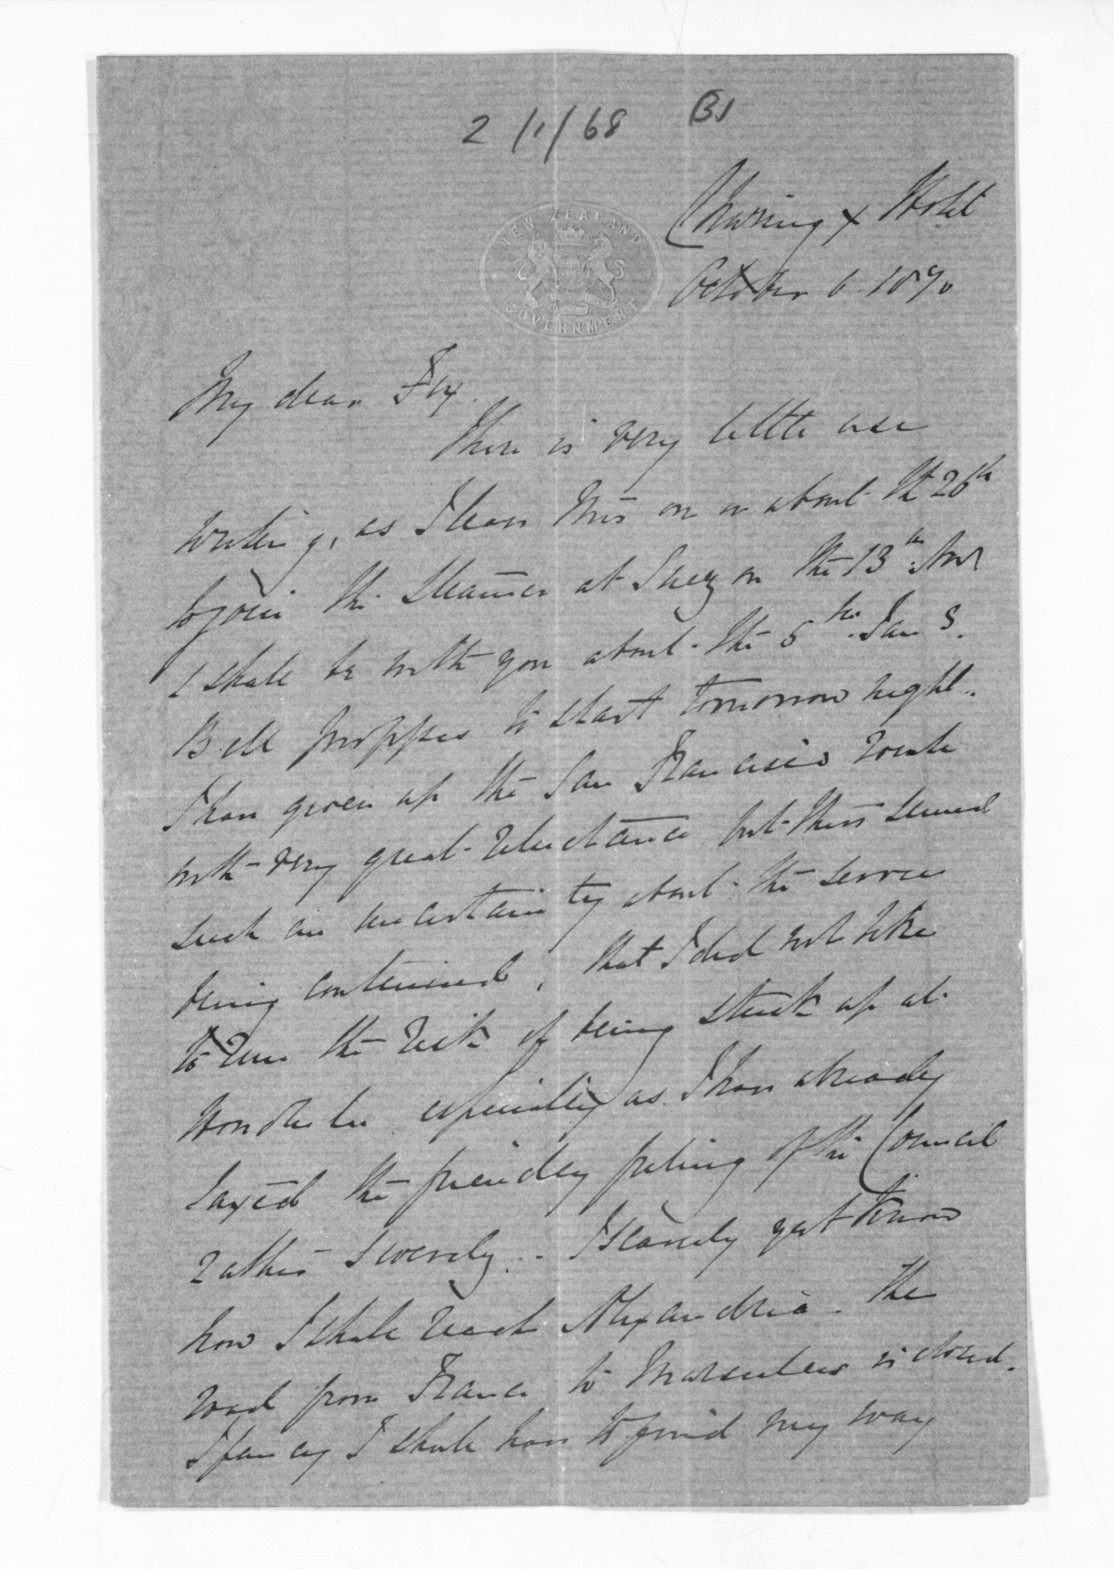 2/1/68 BJ
NEW ZEALAND GOVERNMENT
Charing X Hotel
October 6. 1870
My dear Fox.
There is very little use
writing, as I leave this on or about the 26th
to join the Steamer at Suez on the 13th. And
I shall be with you about the 5th Jan
Bell proposes to start tomorrow night.
I have given up the San Francisco route
with very great reluctance but there seemed
such an uncertainty about the service
being continued, that I did not like
to run the risk of being stuck up at
Honolulu especially as I have already
taxed the friendly feeling of the Council
rather severely.. I scarcely yet know
how I shall reach Alexandria. The
road from France to Marseilles is closed.
I fancy I shall have to find my way